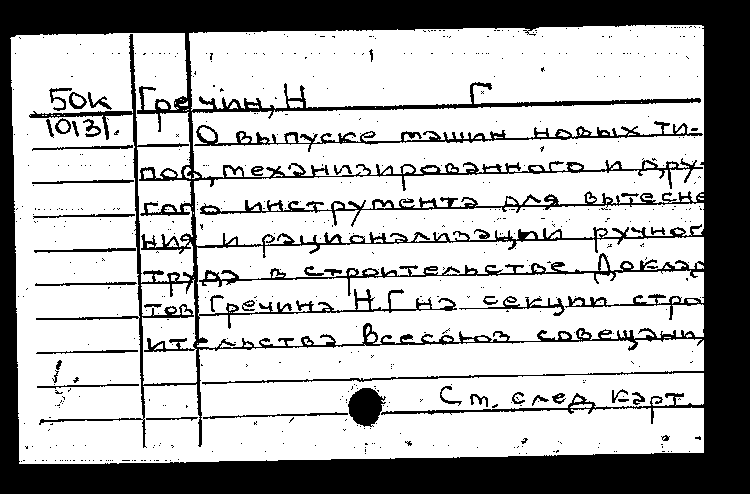 50к Гречин, Н Г
10131.
О выпуске машин новых ти-
пов, механизированного и дру-
гого инструмента для вытесне
ния и рационализации ручног
труда в строительстве. Доклад
тов Гречина Н.Г на секции стро
ительства Всесоюз совещани,
См. след, карт.